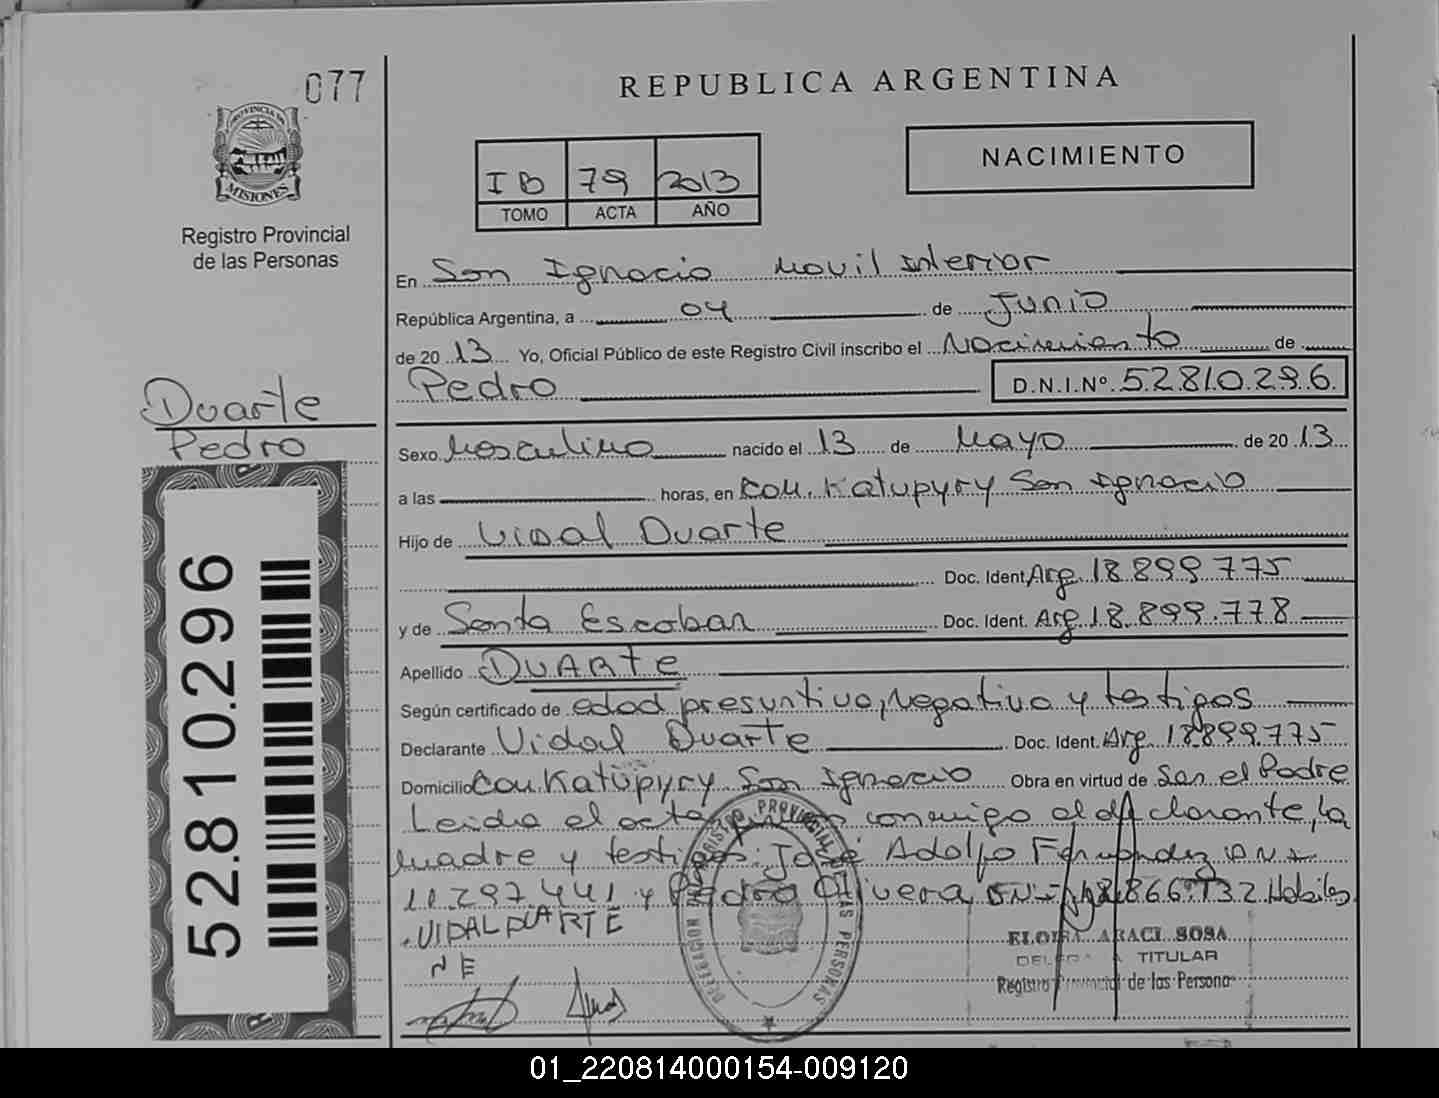 077
REPUBLICA ARGENTINA
PROVINCIA DE
MISIONES
Registro Provincial
de las Personas
I B 79 2013
TOMO ACTA AÑO
NACIMIENTO
En San Ignacio Movil Interior
República Argentina, a 04 de Junio
de 20 13 Yo, Oficial Público de este Registro Civil inscribo el Nacimiento de
Pedro D.N.I.Nº. 52.810.296.
Duarte
Pedro
Sexo Masculino nacido el 13 de Mayo de 20 13
a las horas, en Com. Katupyry San Ignacio
Hijo de Vidal Duarte
Doc. Ident. Arg. 18.899.775
y de Santa Escobar Doc. Ident. Arg. 18.899.778
Apellido DUARTE
Según certificado de edad presuntiva, Negativa y testigos
Declarante Vidal Duarte Doc. Ident. Arg. 18.899.775
Domicilio Com. Katupyry San Ignacio Obra en virtud de Ser el Padre
Leida el acta firman conmigo el declarante, la
madre y testigos: José Adolfo Fernandez D.N.I.
11.297.441 y Pedro Olivera DNI 18.866.732 Habiles.
VIDAL DUARTE
NE
52.810.296
REGISTRO PROVINCIAL DE LAS PERSONAS
ARACI SOSA
TITULAR
Registro Provincial de las Personas
01_220814000154-009120